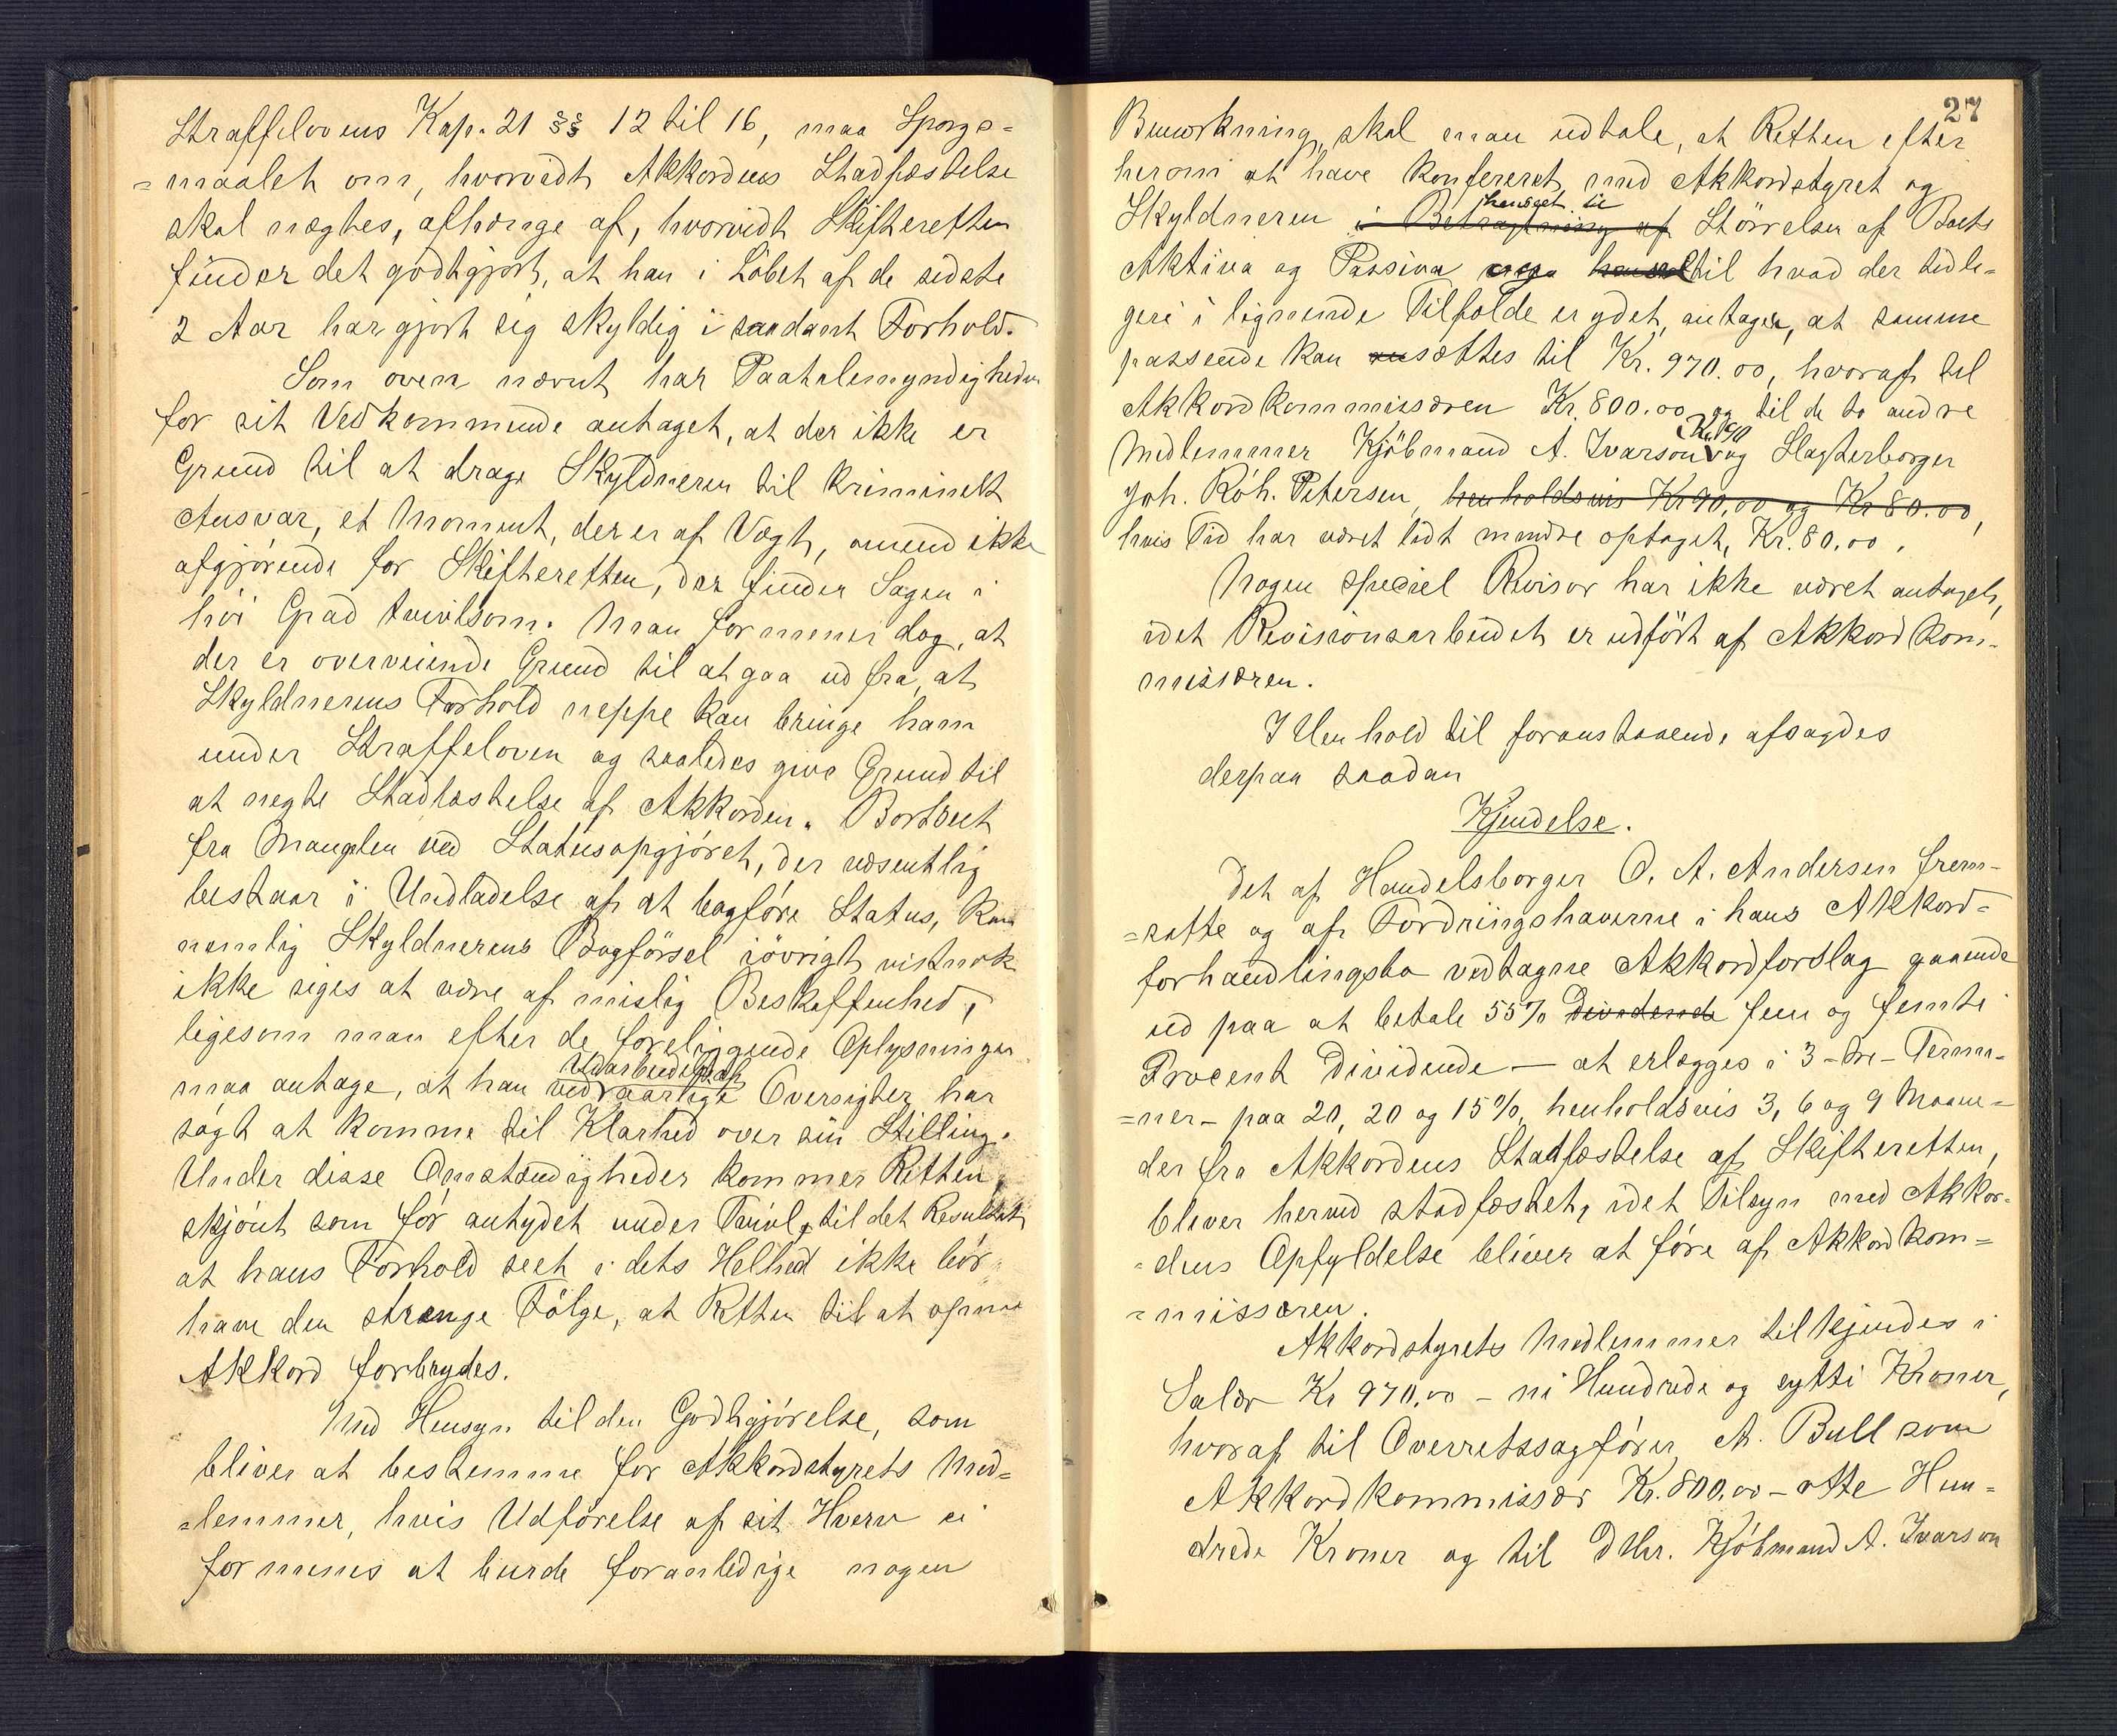 Straffelovens Kap. 21 §§ 12 til 16, maa Spørgs=
=maalet om, hvorvidt Akkordens Stadfæstelse
skal nægtes, afhænge af, hvorvidt Skifteretten
finder det godtgjort, at han i Løbet af de sidste
2 Aar har gjort sig skyldig i saadant Forhold.
Som oven nævnt har Paatalemyndigheden
for sit Vedkommende antaget, at der ikke er
Grund til at drage Skyldneren til kriminelt
Ansvar, et Moment, der er af Vægt, omend ikke
afgjørende for Skifteretten, der finder Sagen i
høi Grad tvivlsom. Man formener dog, at
der er overveiende Grund til at gaa ud fra, at
Skyldnerens Forhold neppe kan bringe ham
under Straffeloven og saaledes give Grund til
at negte Stadfæstelse af Akkorden. Bortseet
fra Manglen ved Statusopgjøret, der væsentlig
bestaar i Undladelse af at bogføre Status, kan
nemlig Skyldnerens Bogførsel iøvrigt vistnok
ikke siges at være af mislig Beskaffenhed,
ligesom man efter de foreliggende Oplysninger
Udarbeidelse af
maa antage, at han ved aarlige Oversigter har
søgt at komme til Klarhed over sin Stilling.
Under disse Omstændigheder kommer Retten,
skjønt som før antydet under Tvivl, til det Resultat
at hans Forhold seet i dets Helhed ikke bør
have den strenge Følge, at Retten til at opnaa
Akkord forbrydes.
Med Hensyn til den Godtgjørelse, som
bliver at bestemme for Akkordstyrets Med=
=lemmer, hvis Udførelse af sit Hverv ei
formenes at burde foranledige nogen
27
Bemærkning, skal man udtale, at Retten efter
herom at have konfereret med Akkordstyret og
henseet til
Skyldneren i Betragtning af Størrelsen af Boets
Aktiva og Passiva og til hvad der tidli=
gere i lignende Tilfælde er ydet, antager, at samme
passende kan ansættes til Kr. 970.00, hvoraf til
Akkordkommissæren Kr. 800.00 og til de to andre
Kr. 90
Medlemmer Kjøbmand A. Ivarson og Slagterborger
Joh. Røh. Petersen, henholdsvis Kr 90,00 og Kr 80.00,
hvis Tid har været lidt mindre optaget, Kr. 80.00.
Nogen speciel Revisor har ikke været antaget,
idet Revisionsarbeidet er udført af Akkordkom-
missæren.
I Henhold til foranstaaende afsagdes
derpaa saadan
Kjendelse.
Det af Handelsborger O. A. Andersen frem-
=satte og af Fordringshaverne i hans Akkord=
forhandlingsbo vedtagne Akkordforslag gaaende
ud paa at betale 55% Dividende fem og femti
Procent Dividende — at erlægges i 3 - tre - Termi-
=ner - paa 20, 20 og 15%, henholdsvis 3, 6 og 9 Maane=
der fra Akkordens Stadfæstelse af Skifteretten,
bliver herved stadfæstet, idet Tilsyn med Akkor=
=dens Opfyldelse bliver at føre af Akkordkom=
=missæren.
Akkordstyrets Medlemmer tilkjendes i
Salær Kr 970,00 - ni Hundrede og sytti Kroner,
hvoraf til Overretssagfører A. Bull som
Akkordkommissær Kr. 800.00 - otte Hun=
drede Kroner og til DHr. Kjøbmand A. Ivarson